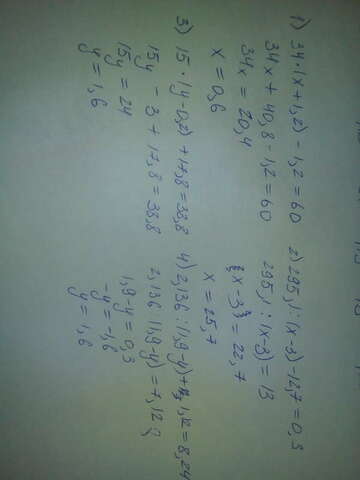 1) 34·(x+1,2)-1,2=60
34x+40,8-1,2=60
34x=20,4
x=0,6
2) 295,1:(x-3)-12,7=0,3
295,1:(x-3)=13
(x-3)=22,7
x=25,7
3) 15·(y-0,2)+17,8=38,8
15y-3+17,8=38,8
15y=24
y=1,6
4) 2,136:(1,9-y)+1,12=8,24
2,136:(1,9-y)=7,12
1,9-y=0,3
-y=-1,6
y=1,6